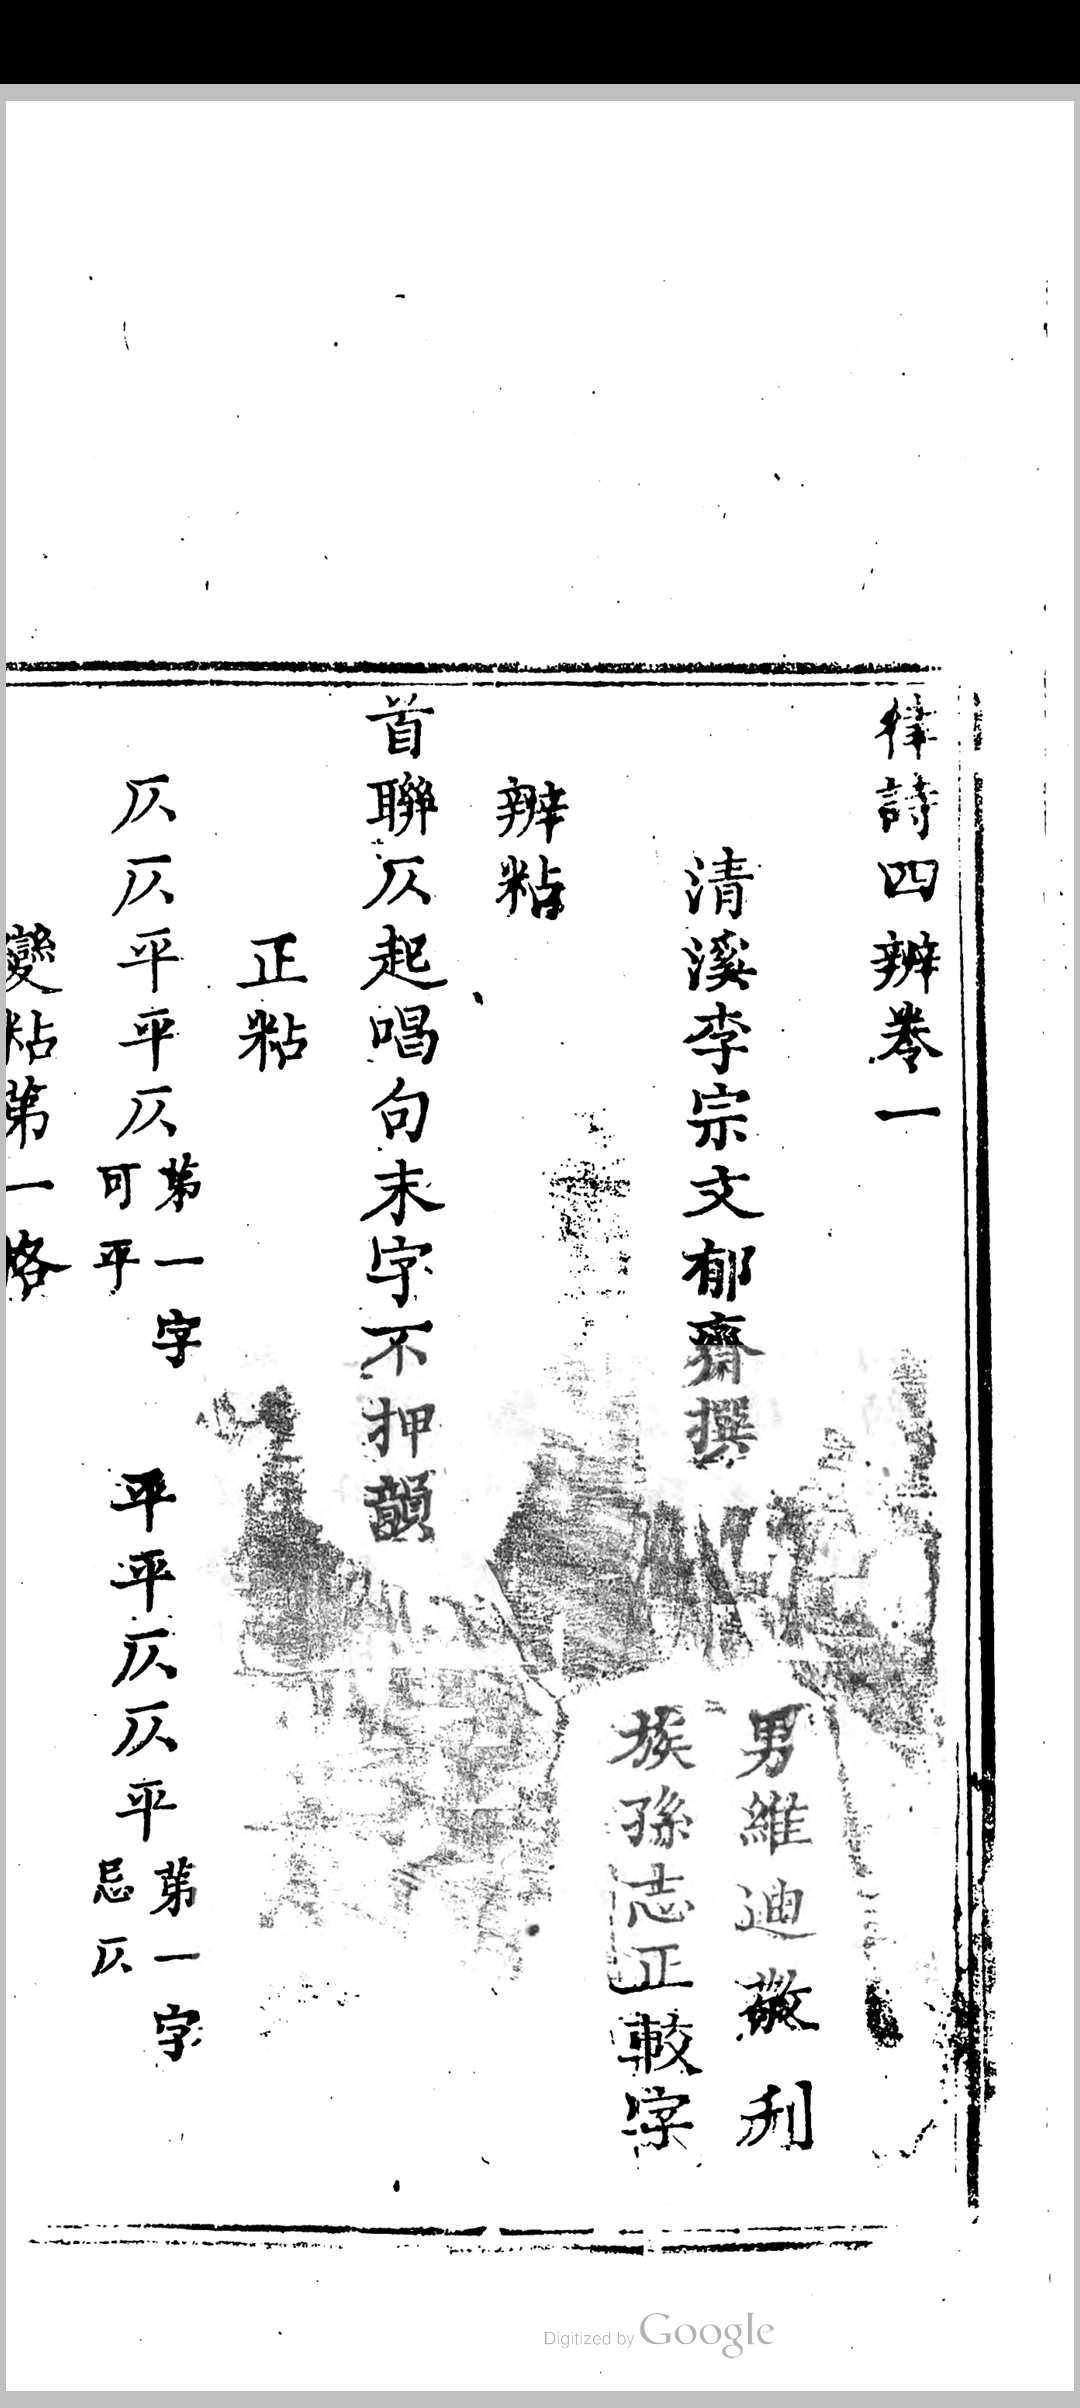 律詩四辨卷一
清溪李宗文郁齋撰
男維迪敬刊
族孫志正較字
辨粘
首聯仄起唱句末字不押韻
正粘
仄仄平平仄第一字可平 平平仄仄平第一字忌仄
變粘第一格
Digitized by Google